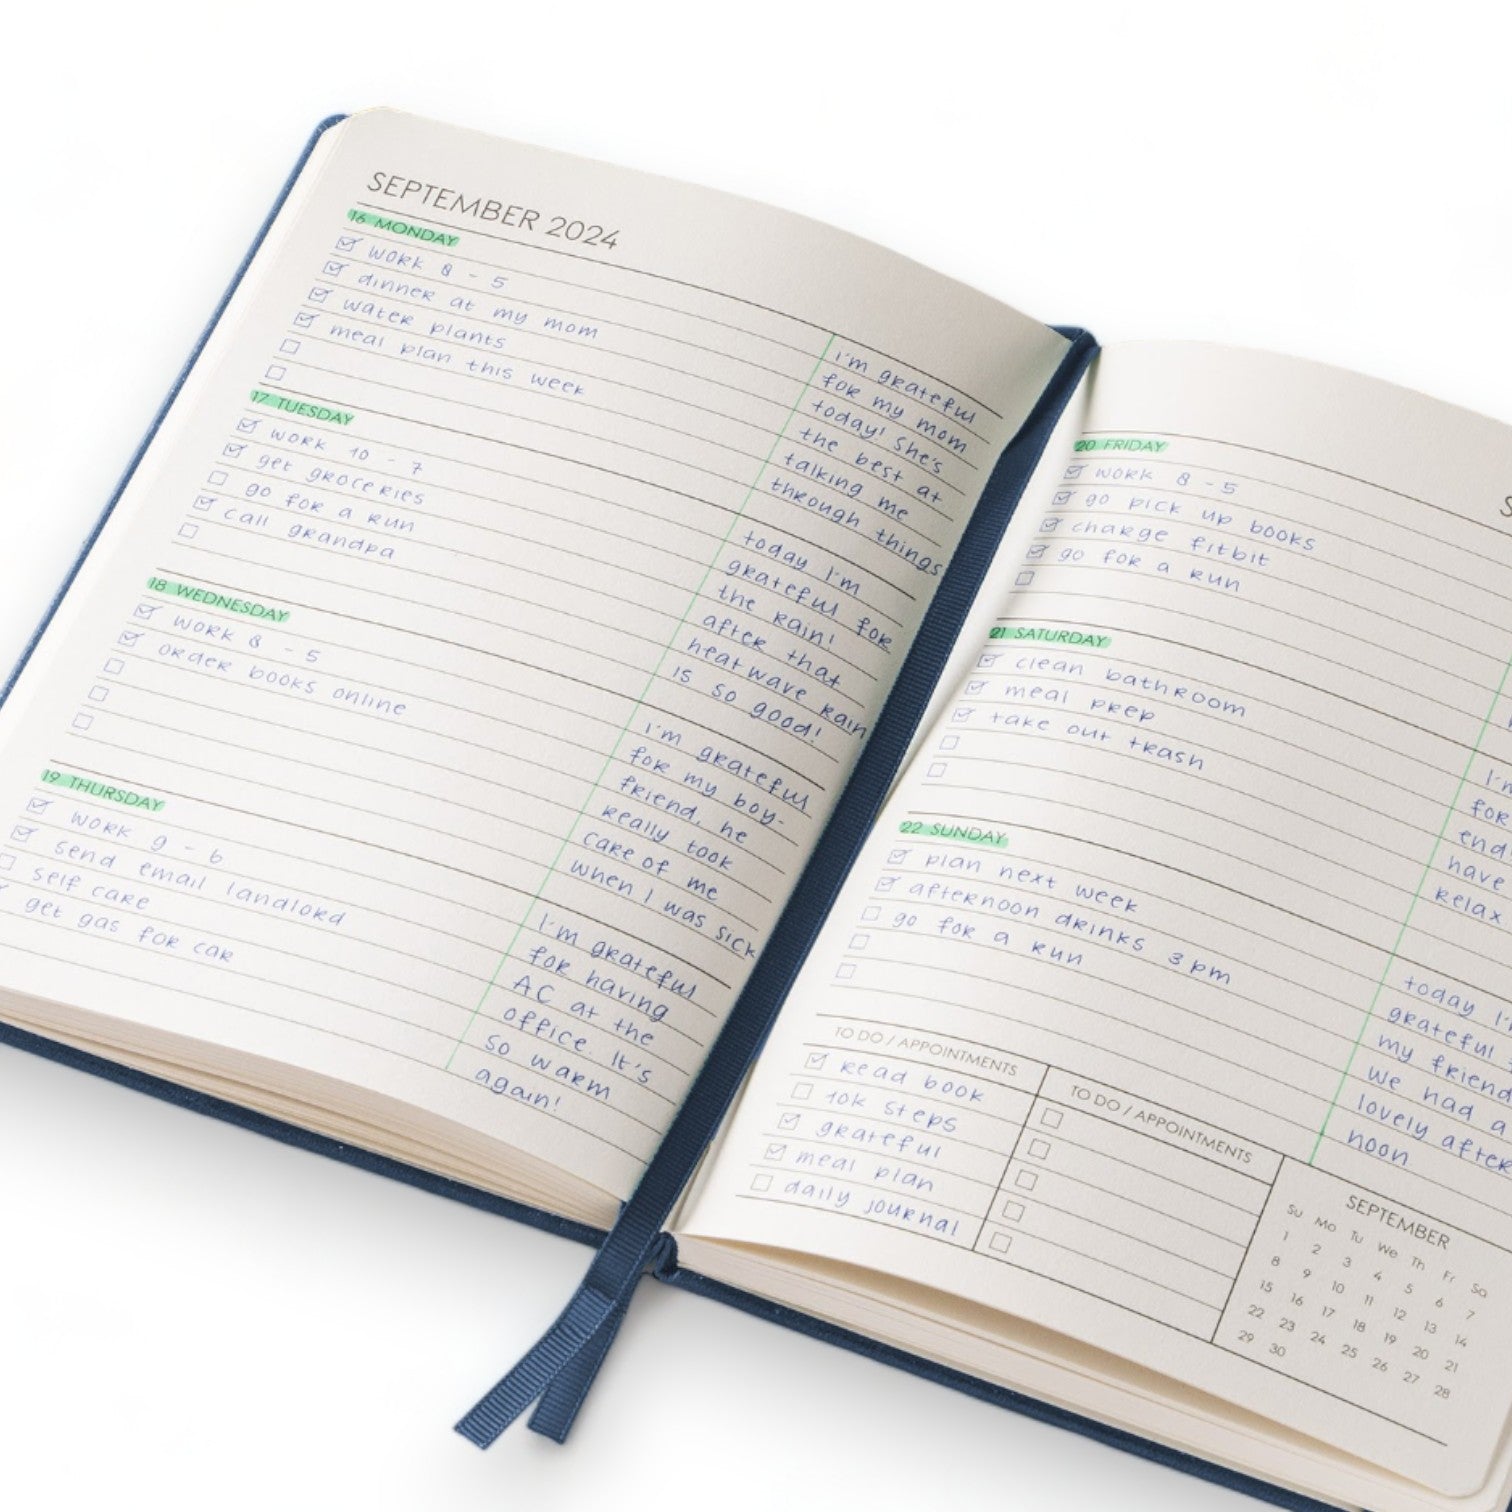 SEPTEMBER 2024
16 MONDAY
work 8 - 5
dinner at my mom
water plants
meal plan this week
i'm grateful
for my mom
today! She's
the best at
talking me
through things
17 TUESDAY
work 10 - 7
get groceries
go for a run
call grandpa
today I'm
grateful for
the rain!
after that
heatwave rain
is so good!
18 WEDNESDAY
work 8 - 5
order books online
i'm grateful
for my boy-
friend, he
really took
care of me
when I was sick
19 THURSDAY
work 9 - 6
send email landlord
self care
get gas for car
I'm grateful
for having
AC at the
office. It's
so warm
again!
20 FRIDAY
work 8 - 5
go pick up books
charge fitbit
go for a run
21 SATURDAY
clean bathroom
meal prep
take out trash
for
have
relax
22 SUNDAY
plan next week
afternoon drinks 3pm
go for a run
today
grateful
my friend
we had a
lovely after
noon
TO DO / APPOINTMENTS
read book
10k steps
grateful
meal plan
daily journal
TO DO / APPOINTMENTS
SEPTEMBER
Su Mo Tu We Th Fr Sa
1 2 3 4 5 6 7
8 9 10 11 12 13 14
15 16 17 18 19 20 21
22 23 24 25 26 27 28
29 30